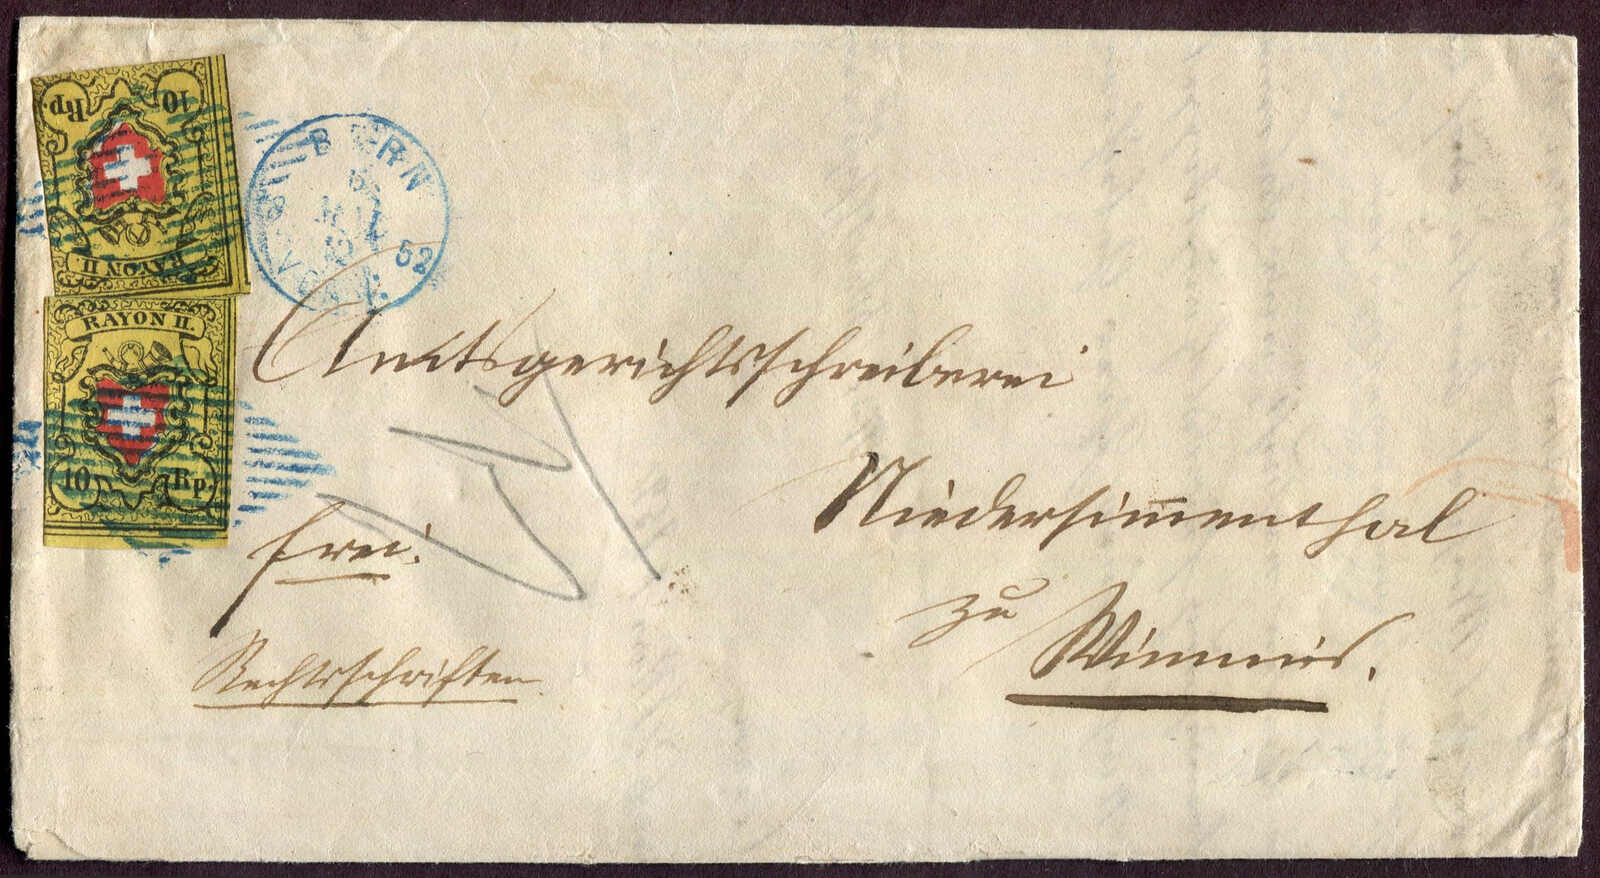 10 Rp.
RAYON II.
RAYON II.
10 Rp.
BERN
52
Amtsgerichtsschreiberei
Niedersimmenthal
zu Wimmis.
frei.
Rechtsschriften